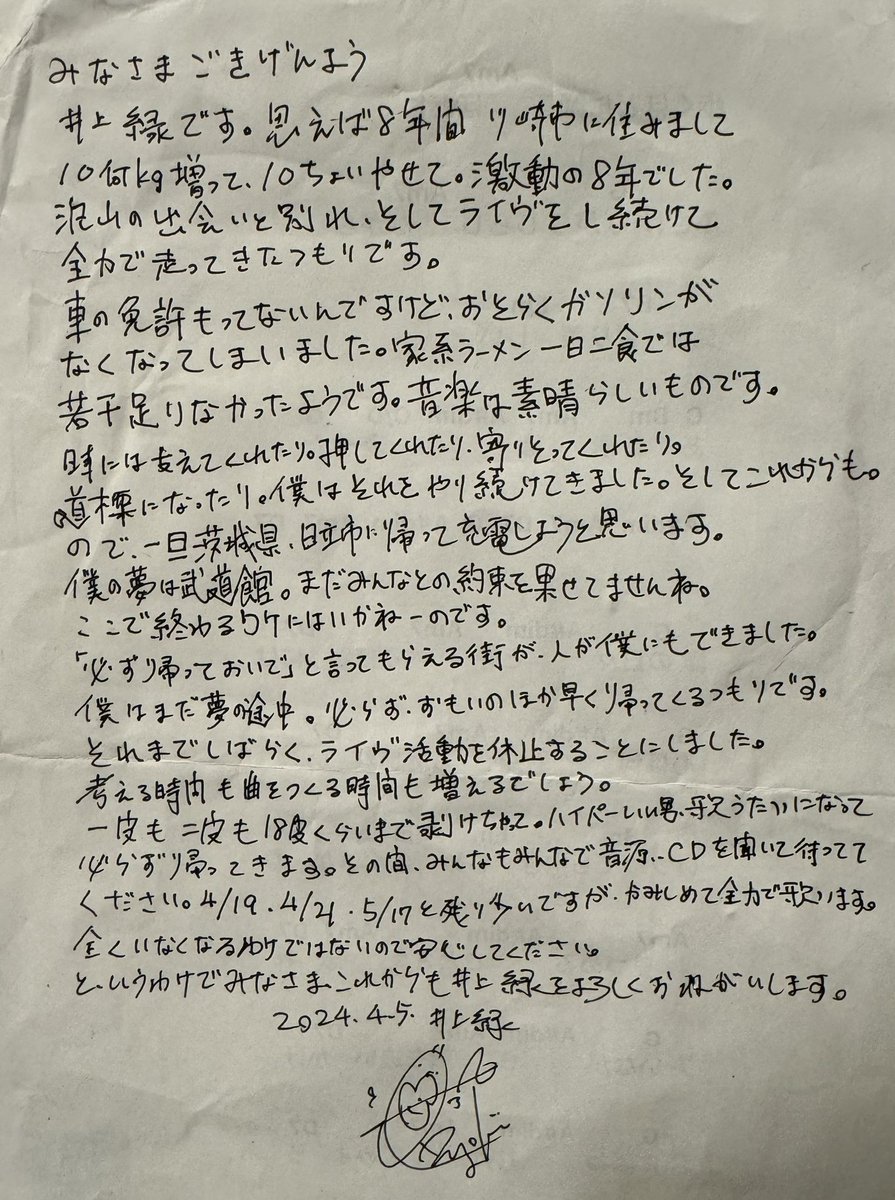 みなさま ごきげんよう
井上 緑です。思えば8年間 川崎市に住みまして
10何kg増って、10ちょいやせて。激動の8年でした。
沢山の出会いと別れ、そしてライヴをし続けて
全力で走ってきたつもりです。
車の免許もってないんですけど、おそらくガソリンが
なくなってしまいました。家系ラーメン一日二食では
若干足りなかったようです。音楽は素晴らしいものです。
時には支えてくれたり。押してくれたり、寄りそってくれたり。
道標になったり。僕はそれをやり続けてきました。そしてこれからも。
ので、一旦茨城県、日立市に帰って充電しようと思います。
僕の夢は武道館。まだみんなとの約束を果せてませんね。
ここで終わるワケにはいかねーのです。
「必ず帰っておいで」と言ってもらえる街が、人が僕にもできました。
僕はまだ夢の途中。必らず、おもいのほか早く帰ってくるつもりです。
それまでしばらく、ライヴ活動を休止することにしました。
考える時間も曲をつくる時間も増えるでしょう。
一皮も二皮も18皮くらいまで剥けちゃって。ハイパーいい男、歌うたいになって
必らず帰ってきます。その間、みんなもみんなで音源、CDを聞いて待ってて
ください。4/19、4/21、5/17と残り多いですが、かみしめて全力で歌います。
全くいなくなるわけではないので安心してください。
と、いうわけでみなさま、これからも井上 緑をよろしくおねがいします。
2024.4.5. 井上緑